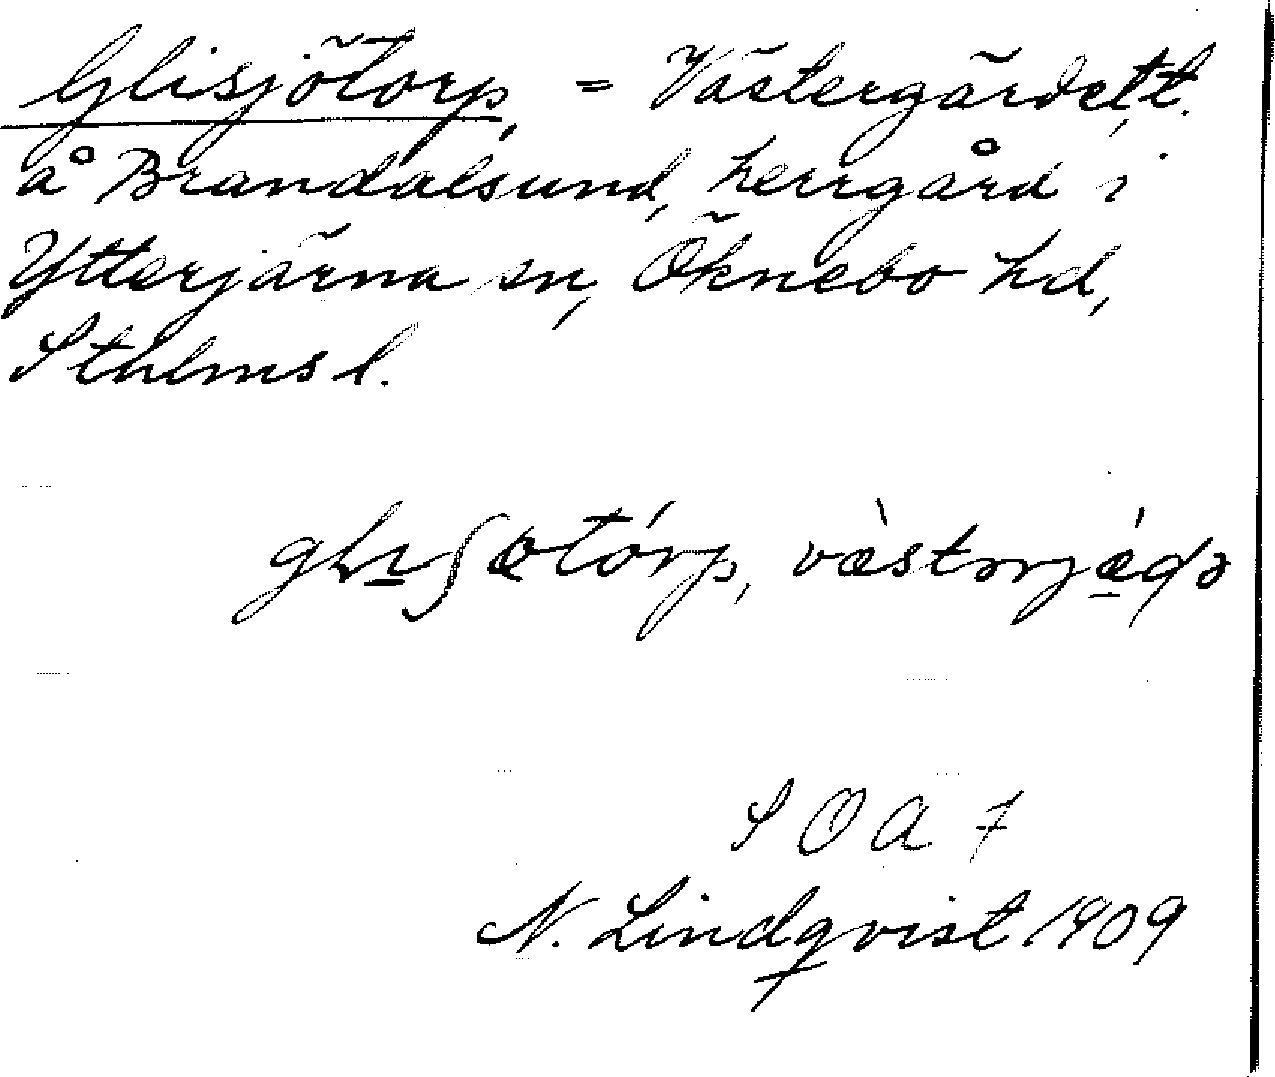 Glisjötorp, = Västergärdet, t.
å Brandalsund, herrgård i
Ytterjärna sn, Öknebo hd,
Sthlms l.
S O A 7
N. Lindqvist 1909